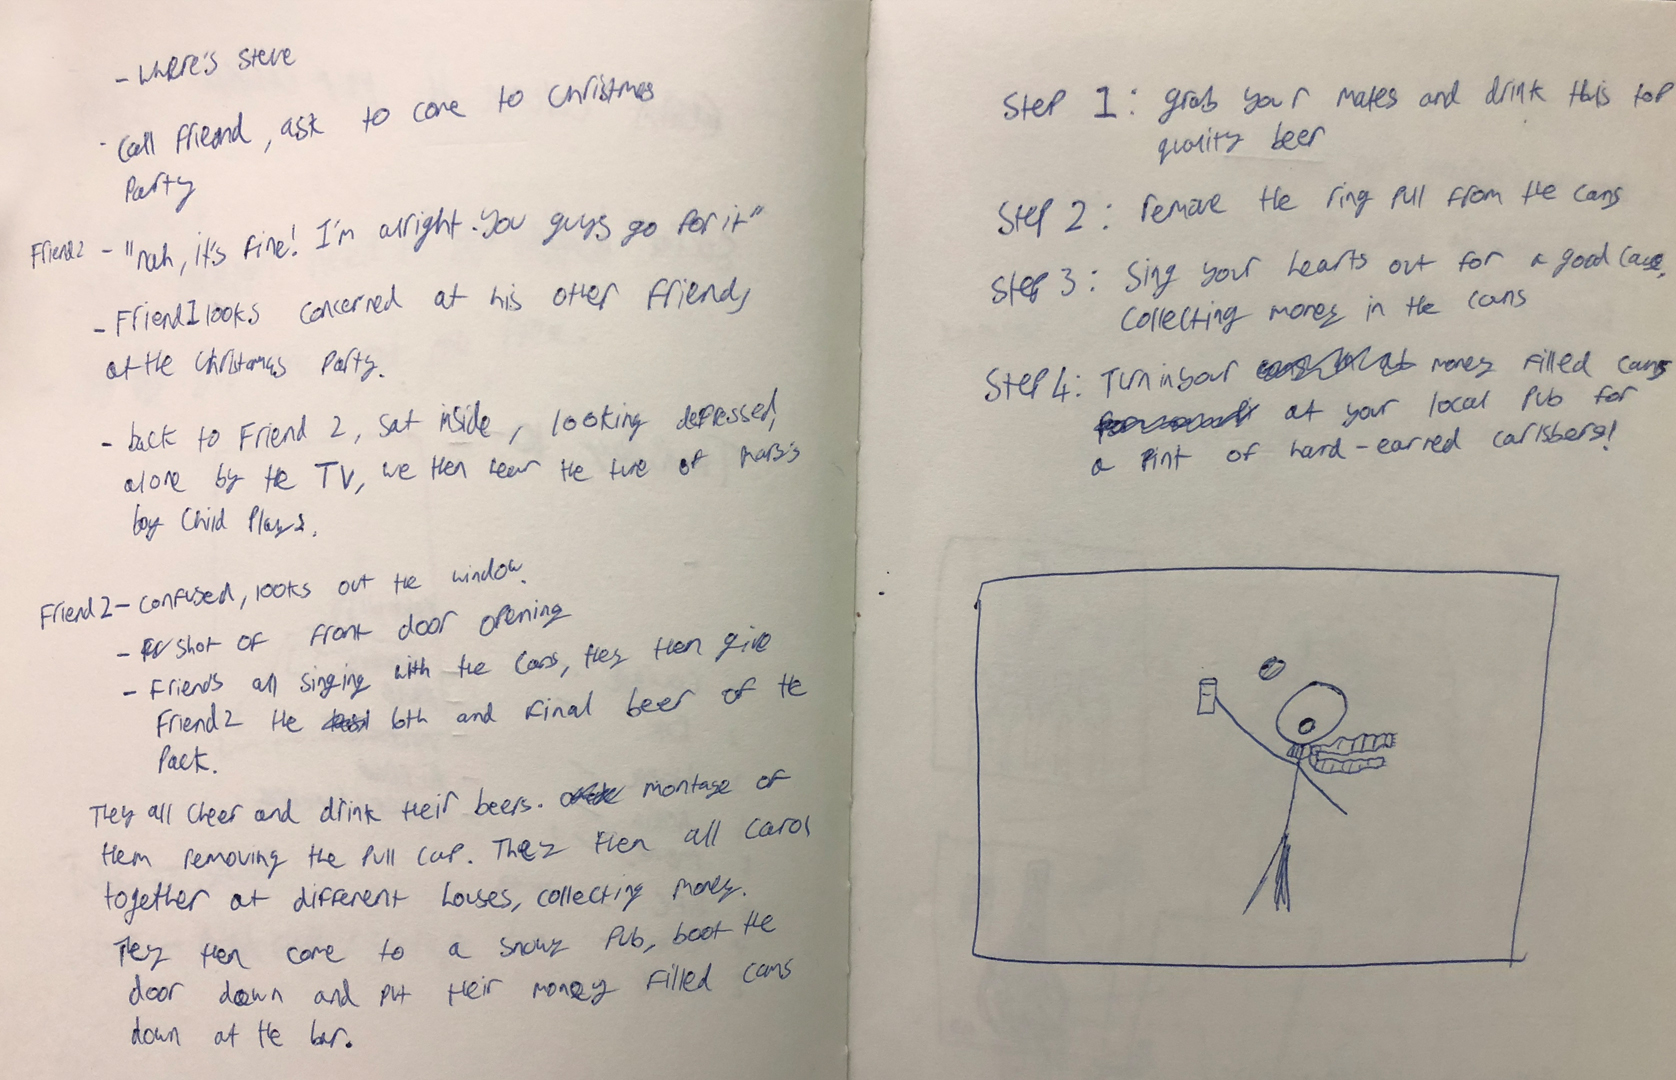 - where's steve
- Call friend, ask to come to Christmas
Party
Friend2 - "nah, it's fine! I'm alright. You guys go for it"
- Friend1 looks concerned at his other friends
at the Christmas Party.
- back to Friend 2, sat inside, looking depressed,
alone by the TV, we then hear the tune of Mary's
boy Child Plays.
Friend2 - confused, looks out the window.
- shot of front door opening
- Friends all singing with the cans, they then give
Friend2 the 6th and final beer of the
Pack.
They all cheer and drink their beers. montage of
them removing the Pull cap. They then all carol
together at different houses, collecting money.
They then come to a snowy Pub, boot the
door down and put their money filled cans
down at the bar.
Step 1: grab your mates and drink this top
quality beer
Step 2: remove the ring pull from the cans
Step 3: Sing your hearts out for a good cause,
Collecting money in the cans
Step 4: Turn in your money filled cans
at your local Pub for
a Pint of hard-earned carlsberg!